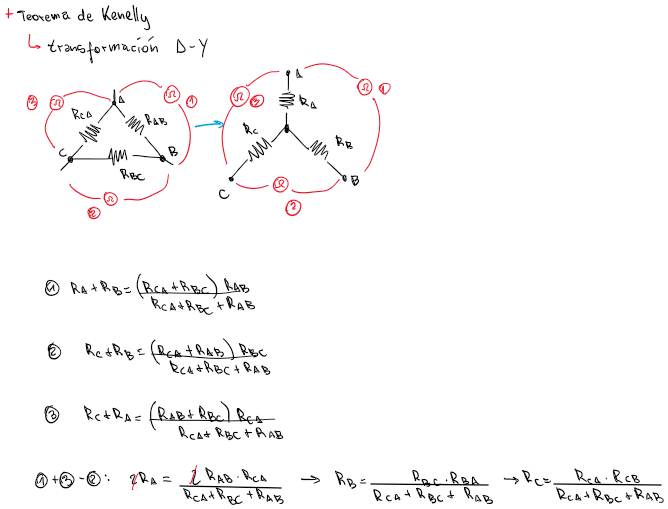 + Teorema de Kenelly
↳ transformación Δ-Y
③ Ω A Ω ①
R_CA R_AB
C B
R_BC
Ω
②
A
Ω ③ R_A Ω ①
R_C R_B
C Ω B
②
① R_A + R_B = (R_CA + R_BC) R_AB / R_CA + R_BC + R_AB
② R_C + R_B = (R_CA + R_AB) R_BC / R_CA + R_BC + R_AB
③ R_C + R_A = (R_AB + R_BC) R_CA / R_CA + R_BC + R_AB
① + ③ - ②: 2R_A = 2 R_AB · R_CA / R_CA + R_BC + R_AB → R_B = R_BC · R_BA / R_CA + R_BC + R_AB → R_C = R_CA · R_CB / R_CA + R_BC + R_AB